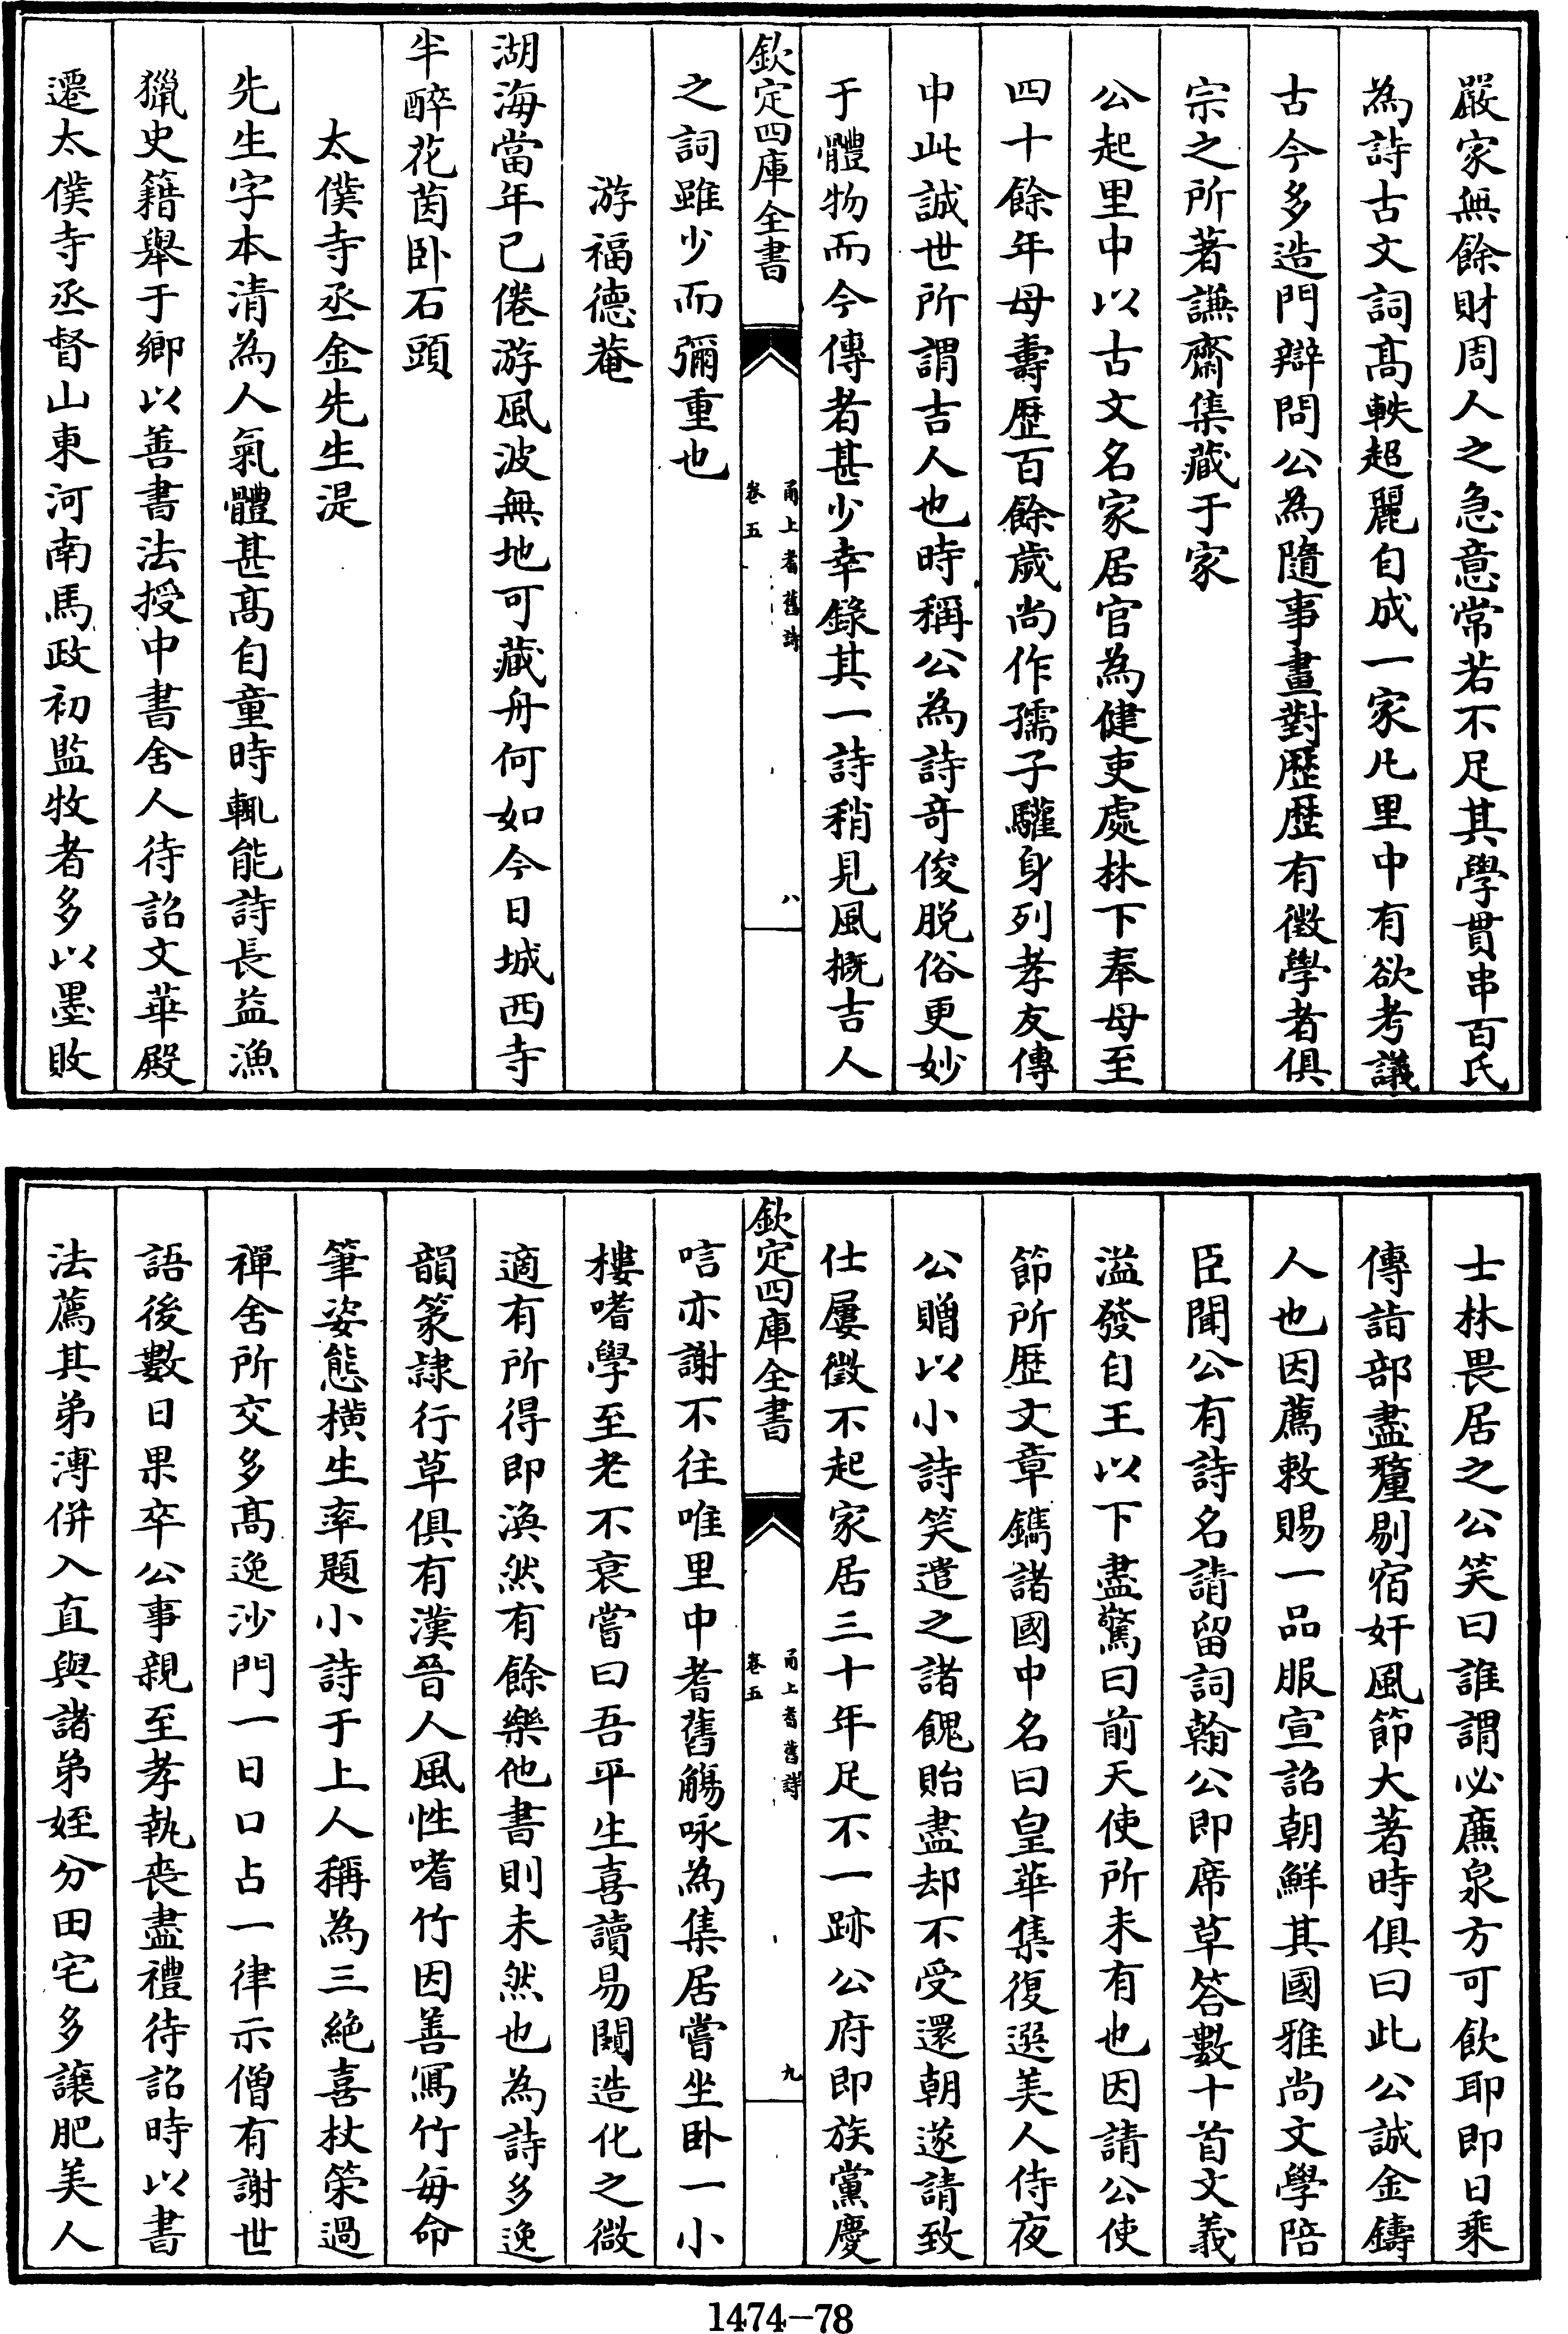 嚴家無餘財周人之急意常若不足其學貫串百氏
為詩古文詞髙軼超麗自成一家凡里中有欲考議
古今多造門辯問公為隨事畫對歷歷有徵學者俱
宗之所著謙齋集藏于家
公起里中以古文名家居官為健吏處林下奉母至
四十餘年母壽歴百餘歲尚作孺子驩身列孝友傳
中此誠世所謂吉人也時稱公為詩奇俊脱俗更妙
于體物而今傳者甚少幸錄其一詩稍見風概吉人
欽定四庫全書
甬上耆舊詩
卷五
八
之詞雖少而彌重也
游福德菴
湖海當年已倦游風波無地可藏舟何如今日城西寺
半醉花茵卧石頭
太僕寺丞金先生湜
先生字本清為人氣體甚髙自童時輒能詩長益漁
獵史籍舉于鄉以善書法授中書舍人待詔文華殿
遷太僕寺丞督山東河南馬政初監牧者多以墨敗
士林畏居之公笑曰誰謂必亷泉方可飲耶即日乘
傳詣部盡釐剔宿奸風節大著時俱曰此公誠金鑄
人也因薦敕賜一品服宣詔朝鮮其國雅尚文學陪
臣聞公有詩名請留詞翰公即席草答數十首文義
溢發自王以下盡驚曰前天使所未有也因請公使
節所歴文章鐫諸國中名曰皇華集復選美人侍夜
公贈以小詩笑遣之諸餽貽盡却不受還朝遂請致
仕屢徵不起家居三十年足不一跡公府即族黨慶
欽定四庫全書
甬上耆舊詩
卷五
九
唁亦謝不往唯里中耆舊觴咏為集居嘗坐卧一小
樓嗜學至老不衰嘗曰吾平生喜讀易闚造化之微
適有所得即渙然有餘樂他書則未然也為詩多逸
韻篆隸行草俱有漢晉人風性嗜竹因善寫竹每命
筆姿態横生率題小詩于上人稱為三絶喜杖䇿過
禪舍所交多髙逸沙門一日口占一律示僧有謝世
語後數日果卒公事親至孝執喪盡禮待詔時以書
法薦其弟溥併入直與諸弟姪分田宅多讓肥美人
1474-78